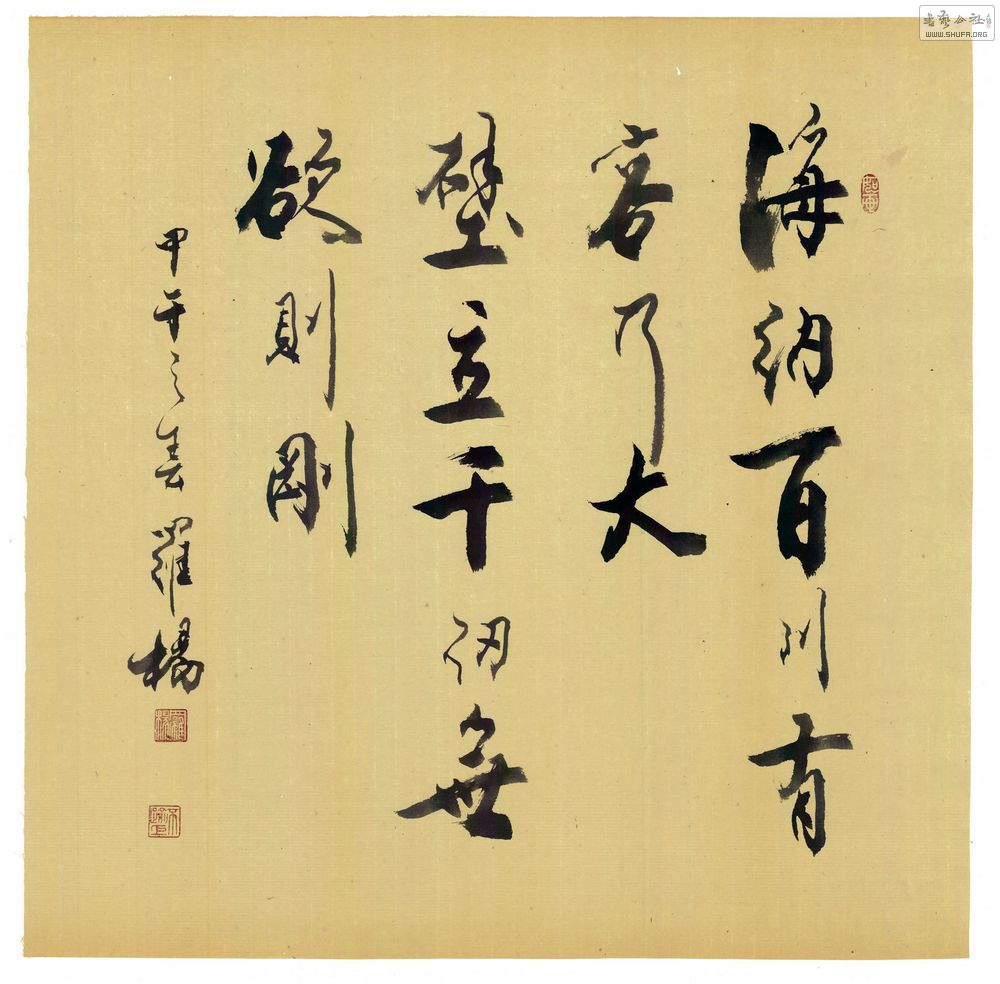 海納百川有
容乃大
壁立千仞無
欲則剛
甲午之春羅楊
書藝公社
WWW.SHUFA.ORG